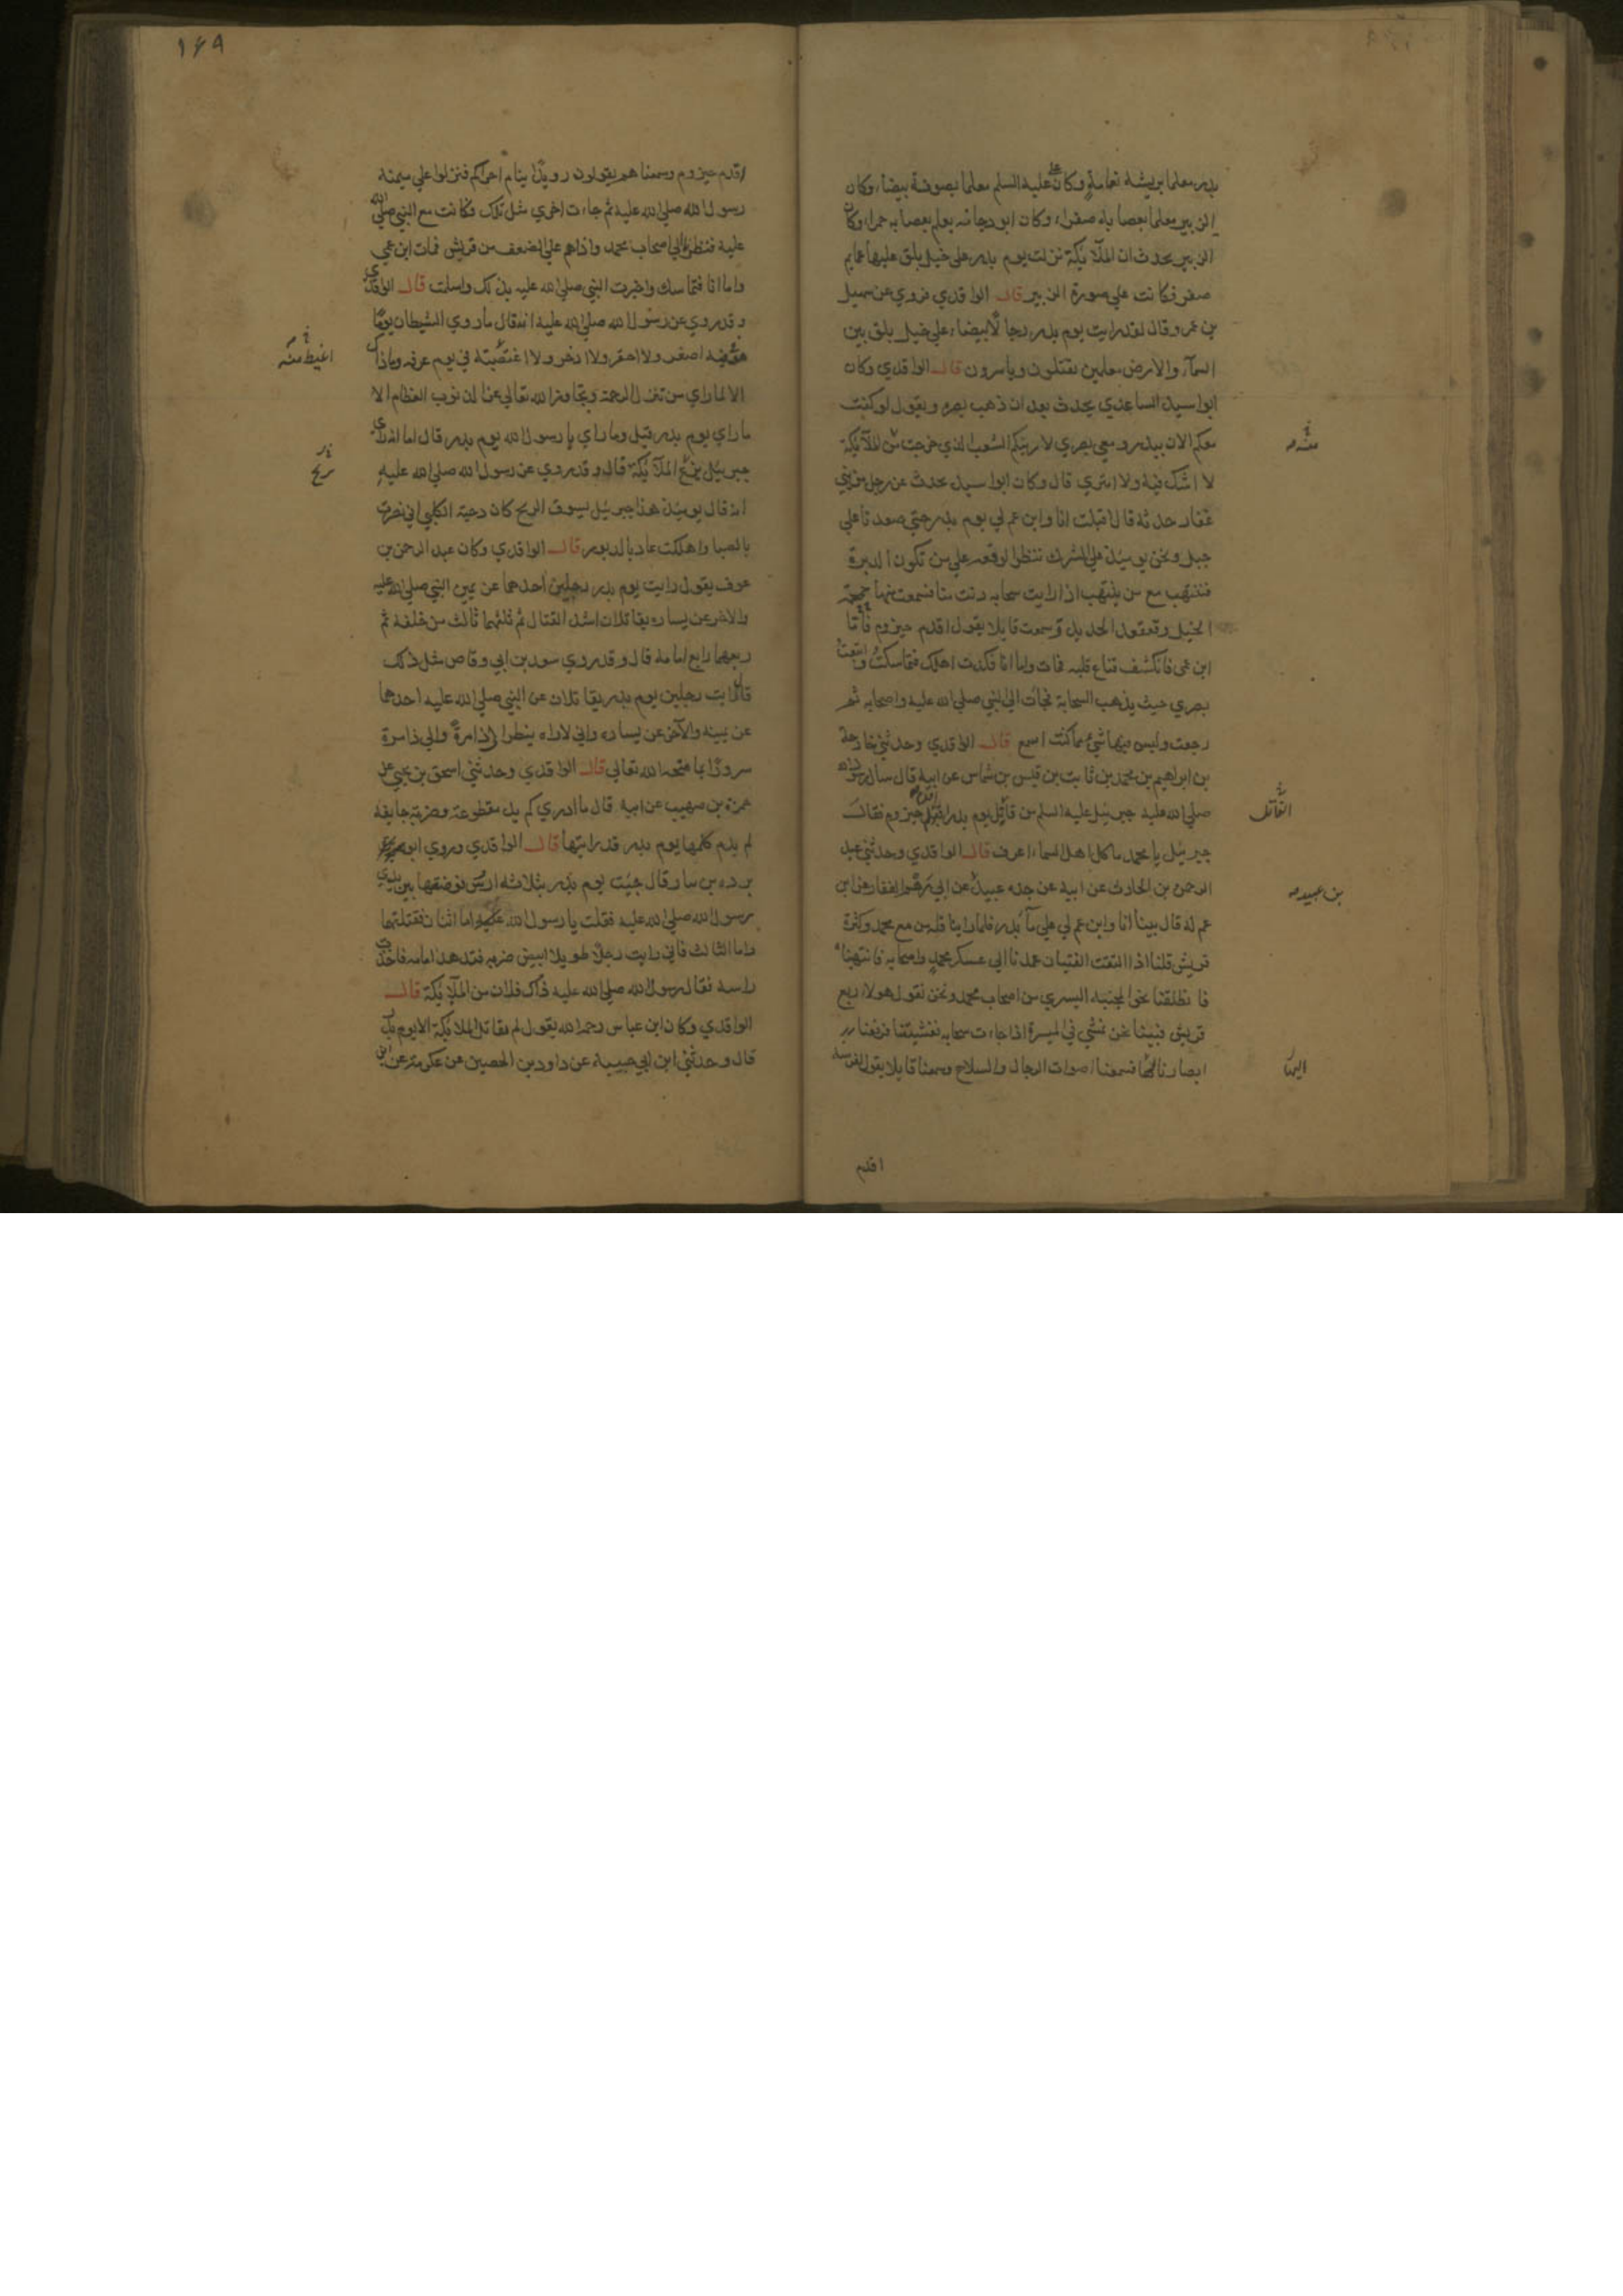 بدر معلما بريشة نعامة وكان علي عليه السلم معلما بصوفة بيضاء وكان
الزبير معلما بعصابة صفراء وكان ابو دجانه يعلم بعصابه حمراء وكان
الزبير يحدث ان الملآئكة نزلت يوم بدر على خيل بلق عليها عمايم
صفر فكانت على صورة الزبير قال الواقدي فروي عن سهيل
بن عمر وقال لقد رايت يوم بدر رجالا بيضاء على خيل بلق بين
السمآء والارض معلمين يقتلون وياسرون قال الواقدي وكان
ابو اسيد الساعدي يحدث بعد ان ذهب بصره ويقول لو كنت
معكم الان ببدر ومعي بصري لاريتكم الشعب الذي خرجت منه الملآئكة
منه
لا اشك فيه ولا امتري قال وكان ابو اسيد يحدث عن رجل من بني
غفار حدثه قال اقبلت انا وابن عم لي يوم بدر حتى صعدنا على
جبل ونحن يومئذ على الشرك ننتظر الوقعه على من تكون الدبرة
فننتهب مع من ينتهب اذ رايت سحابه دنت منا فسمعت منها حمحمة
الخيل وقعقعه الحديد وسمعت قايلا يقول اقدم حيزوم فاما
ابن عمي فانكشف قناع قلبه فمات واما انا فكدت اهلك فتماسكت واتبعت
بصري حيث يذهب السحابة فجاءت الى النبي صلى الله عليه واصحابه ثم
رجعت وليس فيها شئ مما كنت اسمع قال الواقدي وحدثني خارجة
بن ابراهيم بن محمد بن ثابت بن قيس بن شماس عن ابيه قال سال رسول الله
صلى الله عليه جبرئيل عليه السلم من قائل يوم بدر اقدم حيزوم فقال
القائل
جبرئيل يا محمد ما كل اهل السماء اعرف قال الواقدي وحدثني عبد
الرحمن بن الحارث عن ابيه عن جده عبيد عن ابي رهم الغفاري عن ابن
بن عبيده
عم له قال بينا انا وابن عم لي على مآ بدر فلما راينا قلة من مع محمد وكثرة
قريش قلنا اذا التقت الفئتان عمدنا الى عسكر محمد واصحابه فانتهبناه
فانطلقنا نحو المجنبه اليسرى من اصحاب محمد ونحن نقول هولاء ربع
قريش فبينا نحن نمشي في الميسرة اذ جاءت سحابه فغشيتنا فرفعنا
ابصارنا لها فسمعنا اصوات الرجال والسلاح وسمعنا قايلا يقول لفرسه
اليها
اقدم
١٤٩
اقدم حيزوم وسمعناهم يقولون رويدا يتام اخراكم فنزلوا على ميمنة
رسول الله صلى الله عليه ثم جاءت اخرى مثل تلك فكانت مع النبي صلى الله
عليه فنظرنا الى اصحاب محمد واذا هم على الضعف من قريش فمات ابن عمي
واما انا فتماسك واخبرت النبي صلى الله عليه بذلك واسلمت قال الواقدي
وقد روي عن رسول الله صلى الله عليه انه قال ما روي الشيطان يوما
هو فيه اصغر ولا احقر ولا ادخر ولا اغضبته في يوم عرفه وما ذاك
اغيظ منه
الا لما راي من تنزل الرحمة وتجاوز الله تعالى عن الذنوب العظام الا
ما راي يوم بدر قيل وما راي يا رسول الله يوم بدر قال اما انه راي
جبرئيل يزع الملآئكة قال وقد روي عن رسول الله صلى الله عليه
انه قال يومئذ هذا جبرئيل يسوق الريح كان دحية الكلبي اني نصرت
ريح
بالصبا واهلكت عاد بالدبور قال الواقدي وكان عبد الرحمن بن
عوف يقول رايت يوم بدر رجلين احدهما عن يمين النبي صلى الله عليه
والاخر عن يساره يقاتلان اشد القتال ثم ثلثهما ثالث من خلفه ثم
ربعهما رابع امامه قال وقد روي سعد بن ابي وقاص مثل ذلك
قال رايت رجلين يوم بدر يقاتلان عن النبي صلى الله عليه احدهما
عن يمينه والآخر عن يساره واني لاراه ينظر الى ذا مرة والى ذا مرة
سرورا بما فتحه الله تعالى قال الواقدي وحدثني اسحق بن يحيى عن
حمزة بن صهيب عن ابيه قال ما ادري كم يد مقطوعة وضربة جايفة
لم يدم كلمها يوم بدر قد رايتها قال الواقدي وروي ابو
برده بن نيار قال جئت يوم بدر بثلاثة ارؤس فوضعتها بين يدي
رسول الله صلى الله عليه فقلت يا رسول الله اما اثنان فقتلتهما
واما الثالث فاني رايت رجلا طويلا ابيض ضربه فتدهدا امامه فاخذت
راسه فقال رسول الله صلى الله عليه ذاك فلان من الملآئكة قال
الواقدي وكان ابن عباس رحمه الله يقول لم يقاتل الملائكة الا يوم بدر
قال وحدثني ابن ابي حبيبه عن داود بن الحصين عن عكرمة عن ابن